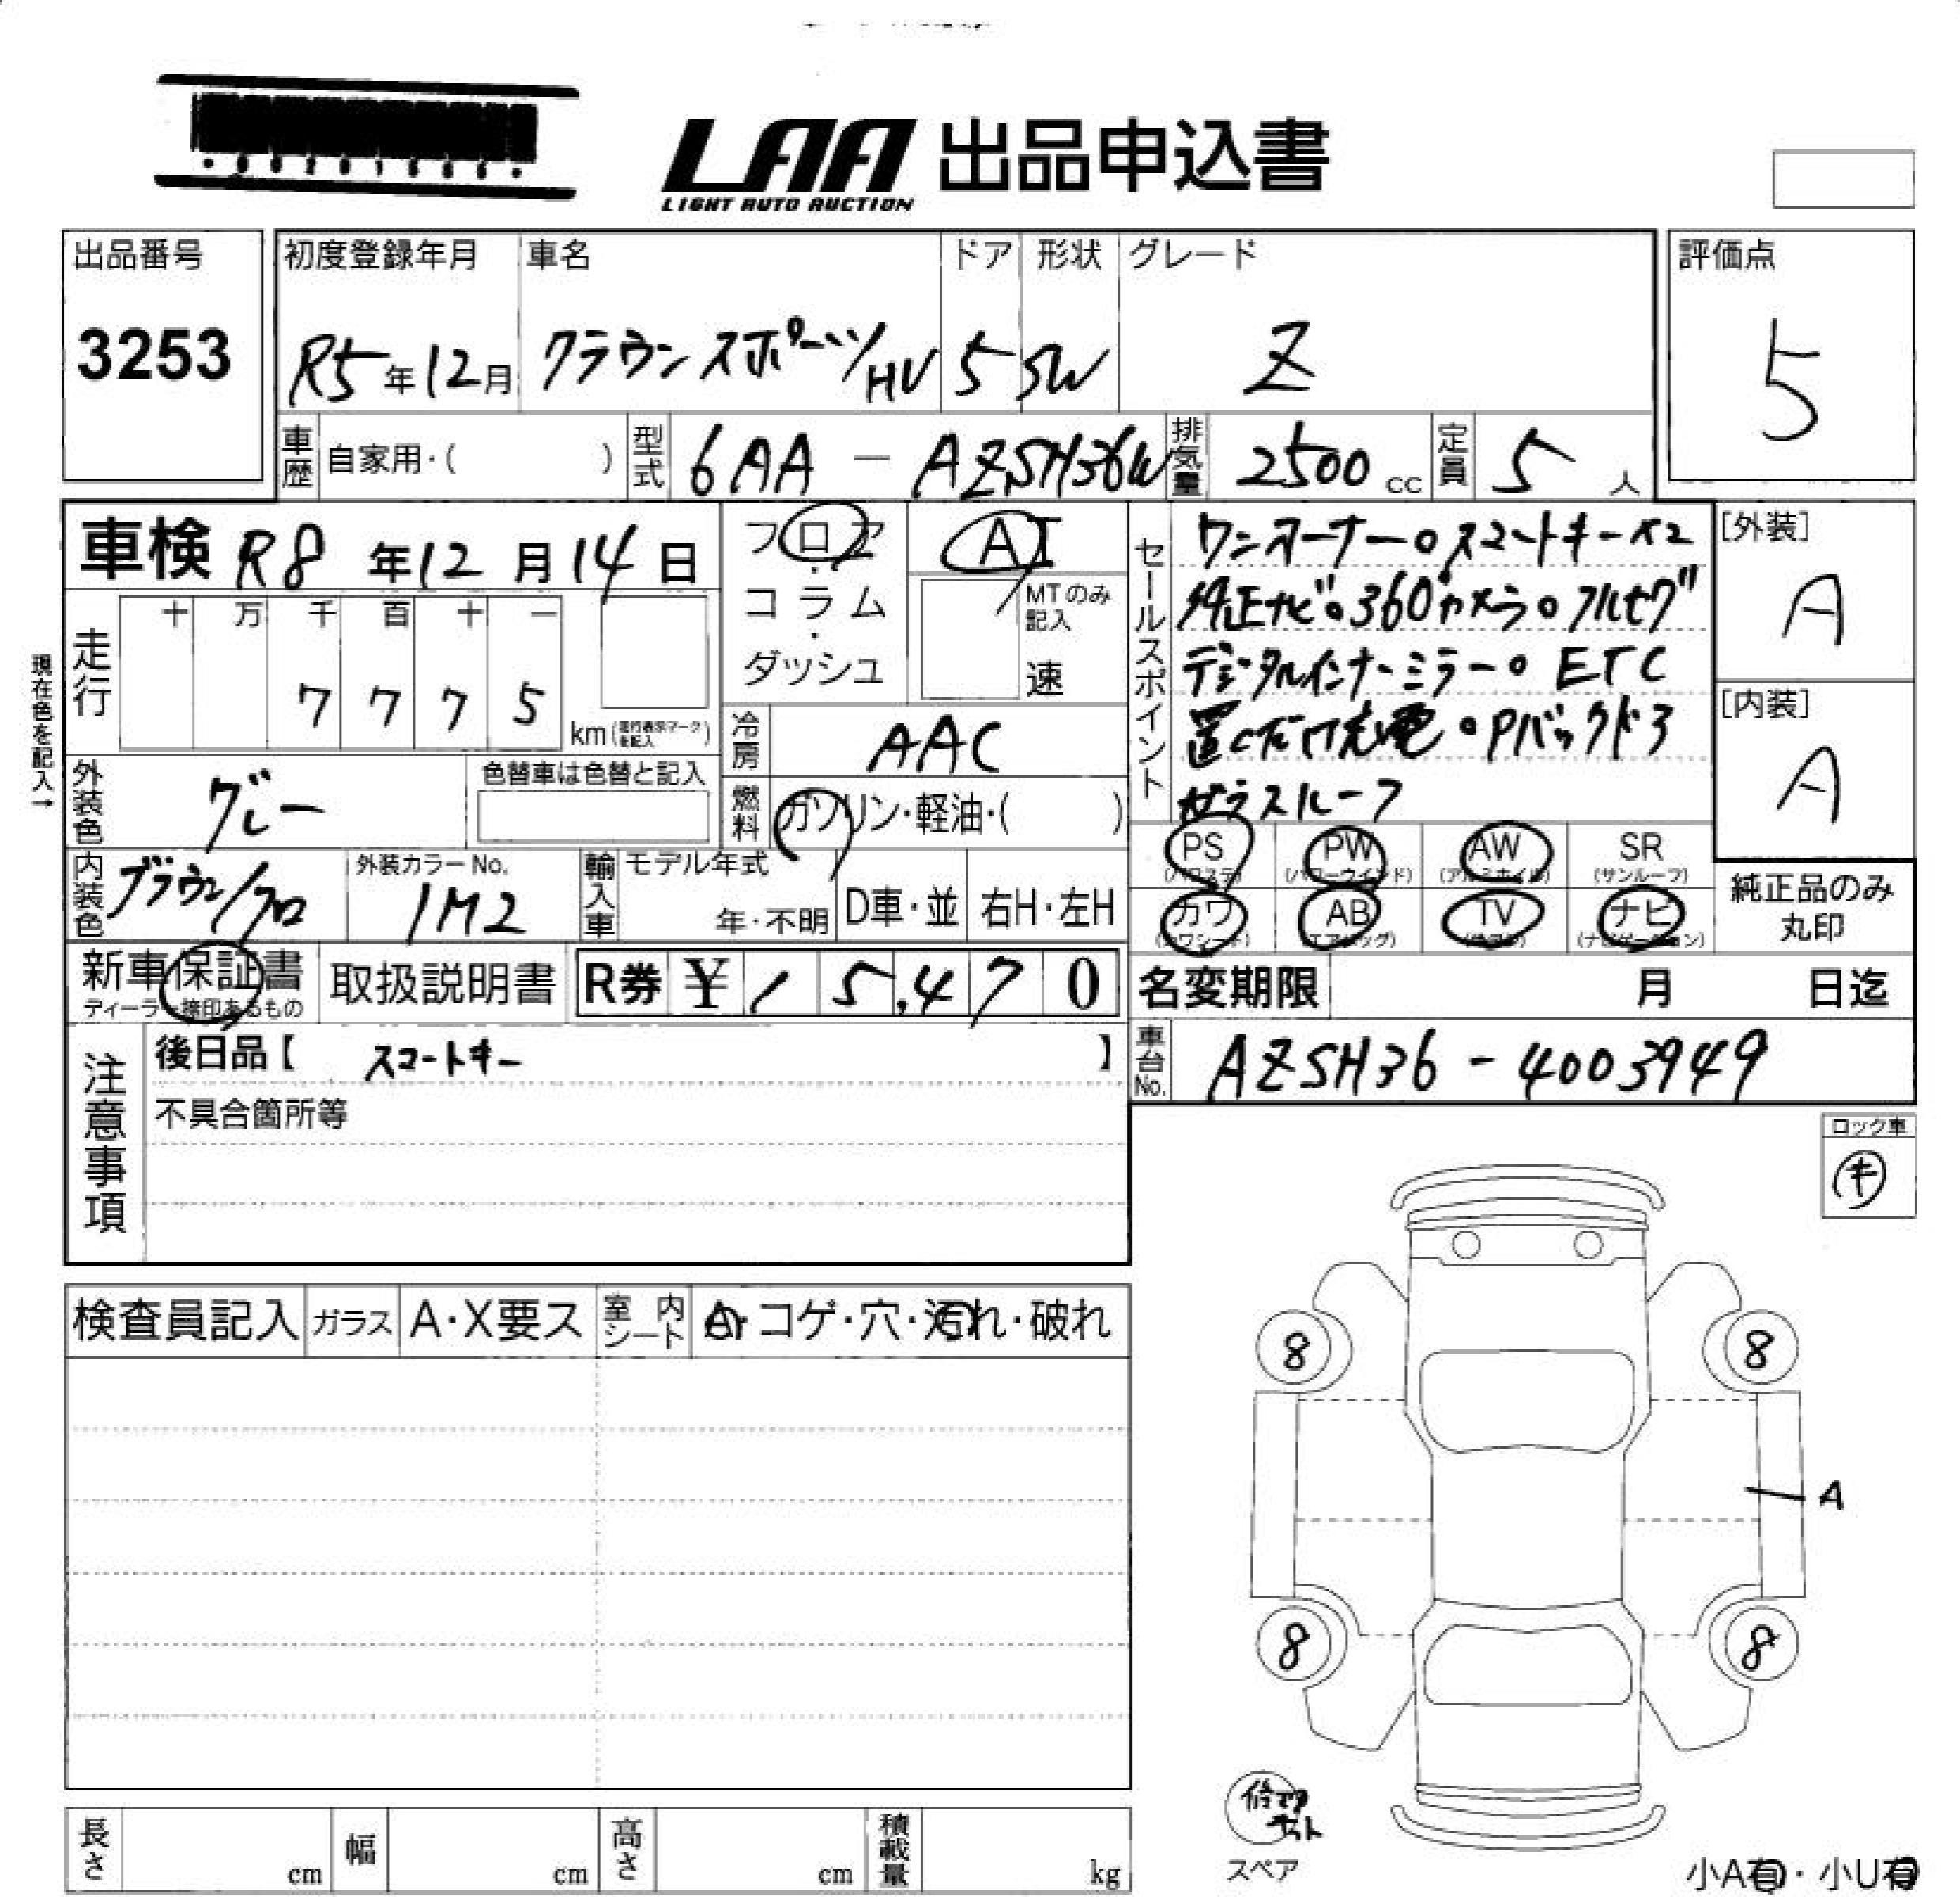 LAA 出品申込書
LIGHT AUTO AUCTION
出品番号
3253
初度登録年月 車名 ドア 形状 グレード
R5年12月 クラウンスポーツHV 5 SW Z
評価点
5
車歴 自家用・( ) 型式 6AA-AZSH36W 排気量 2500cc 定員 5人
車検 R8年12月14日
フロア・コラム・ダッシュ
AT
MTのみ記入
速
セールスポイント
ワンオーナー。スマートキー×2
純正ナビ。360°カメラ。フルセグ
デジタルインナーミラー。ETC
置くだけ充電。Pバックドア
ガラスルーフ
[外装]
A
[内装]
A
現在色を記入→
走行 十 万 千 百 十 一
7 7 7 5 km (走行表示マークを記入)
冷房 AAC
外装色 グレー 色替車は色替と記入
燃料 ガソリン・軽油・( )
PS (パワステ) PW (パワーウインド) AW (アルミホイル) SR (サンルーフ)
カワ (カワシート) AB (エアバッグ) TV ナビ (ナビゲーション)
純正品のみ
丸印
内装色 ブラウン/クロ 外装カラーNo. 1M2 輸入車 モデル年式 年・不明 D車・並 右H・左H
新車保証書 取扱説明書 R券 ¥15,470
ディーラー捺印あるもの
名変期限 月 日迄
注意事項
後日品【 スマートキー 】
車台No. AZSH36-4003949
不具合箇所等
ロック車
キ
検査員記入 ガラス A・X要ス 室内シート A・コゲ・穴・汚れ・破れ
8 8
A
8 8
修理キット
スペア
長さ cm 幅 cm 高さ cm 積載量 kg
小A有・小U有